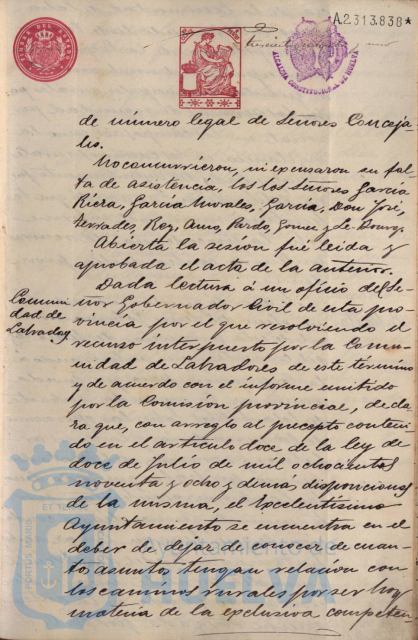 A.2313.838*
de número legal de Señores Conceja-
les.
No concurrieron, ni escusaron su fal-
ta de asistencia, los Señores Garcia
Riera, Garcia Morales, Garcia, Don José,
Terrades, Rey, Amo, Pardo, Gomez y Le-Bourg.
Abierta la sesion fué leida y
aprobada el acta de la anterior.
Comuni-
dad de
Labradores
Dada lectura á un oficio del Se-
ñor Gobernador Civil de esta pro-
vincia por el que resolviendo el
recurso interpuesto por la Comu-
nidad de Labradores de este término
y de acuerdo con el informe emitido
por la Comisión provincial, decla-
ra que, con arreglo al precepto conteni-
do en el articulo doce de la ley de
doce de Julio de mil ochocientos
noventa y ocho y demas disposiciones
de la misma, el Excelentísimo
Ayuntamiento se encuentra en el
deber de dejar de conocer de cuan-
to asuntos tengan relación con
los caminos rurales por ser hoy
materia de la exclusiva competen-
PORTUS MARIS
Ayuntamiento de
HUELVA